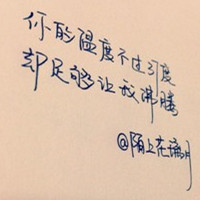 你的温度不过37度
却足够让我沸腾
@陌上花